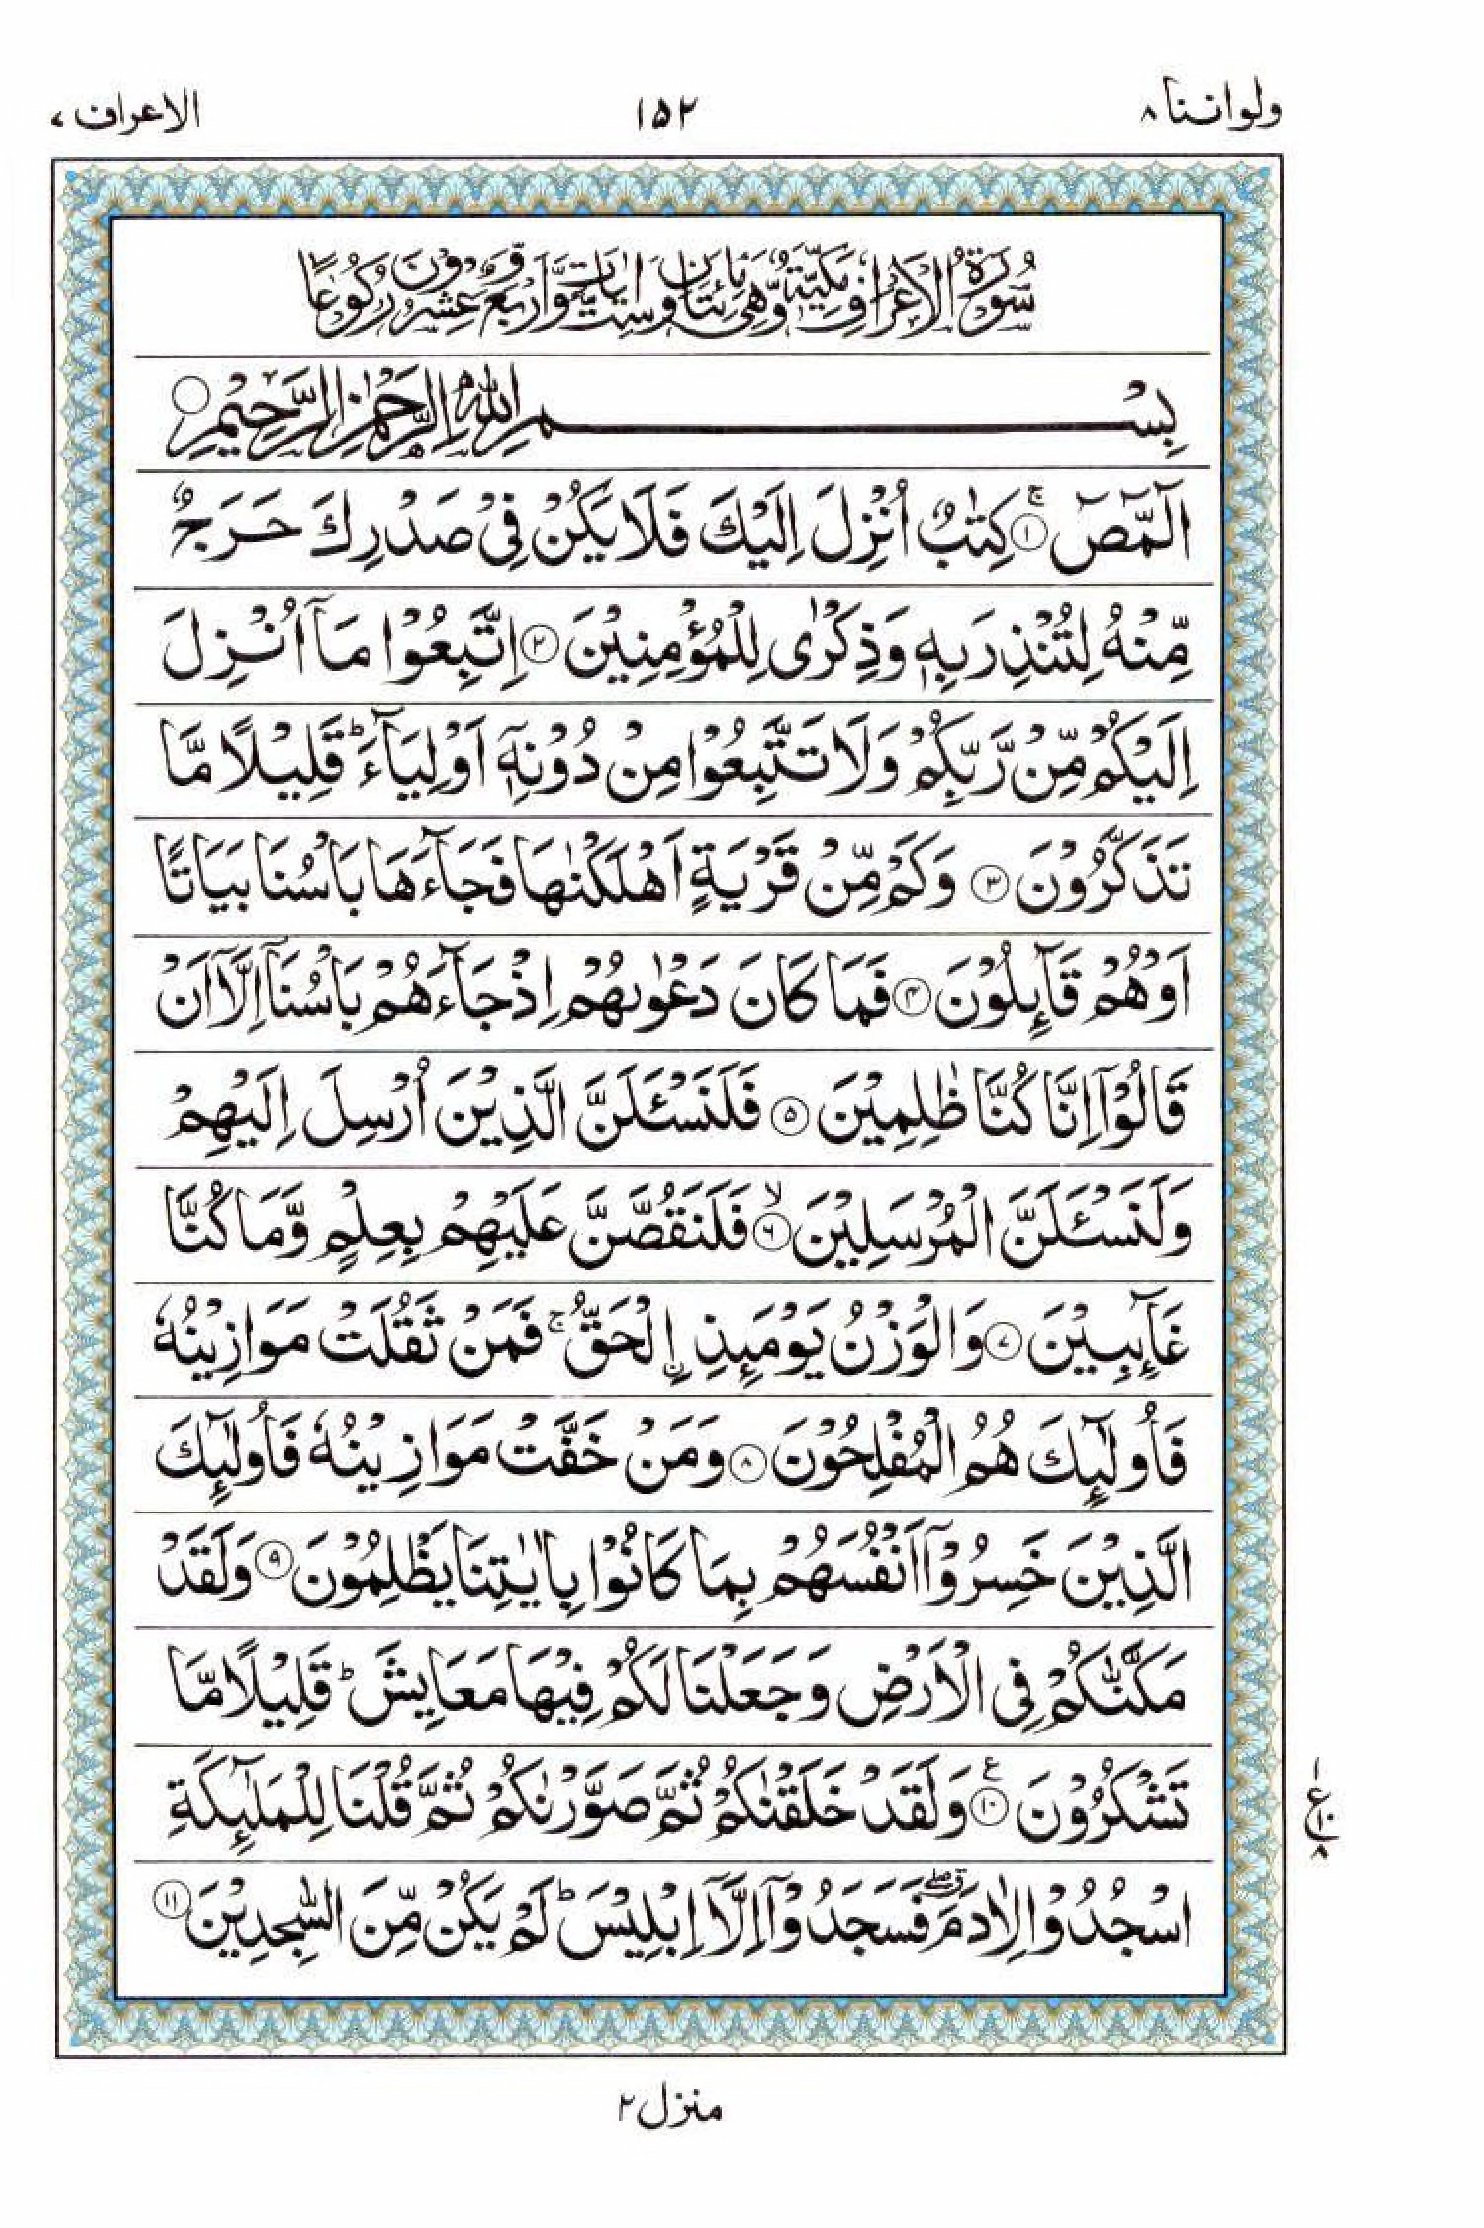 ولواننا ۸
۱۵۲
الاعراف ۷
سُوْرَةُ الْاَعْرَافِ مَكِّيَّةٌ وَّهِيَ مِائَتَانِ وَسِتُّ اٰيَاتٍ وَّاَرْبَعٌ وَّعِشْرُوْنَ رُكُوْعًا
بِسْمِ اللّٰهِ الرَّحْمٰنِ الرَّحِيْمِ ○
الٓمّٓصٓ ۚ‏﴿۱﴾ كِتٰبٌ اُنْزِلَ اِلَيْكَ فَلَا يَكُنْ فِیْ صَدْرِكَ حَرَجٌ
مِّنْهُ لِتُنْذِرَ بِهٖ وَذِكْرٰی لِلْمُؤْمِنِيْنَ ﴿۲﴾ اِتَّبِعُوْا مَاۤ اُنْزِلَ
اِلَيْكُمْ مِّنْ رَّبِّكُمْ وَلَا تَتَّبِعُوْا مِنْ دُوْنِهٖۤ اَوْلِيَآءَ ؕ قَلِيْلًا مَّا
تَذَكَّرُوْنَ ﴿۳﴾ وَكَمْ مِّنْ قَرْيَةٍ اَهْلَكْنٰهَا فَجَآءَهَا بَاْسُنَا بَيَاتًا
اَوْ هُمْ قَآئِلُوْنَ ﴿۴﴾ فَمَا كَانَ دَعْوٰىهُمْ اِذْ جَآءَهُمْ بَاْسُنَاۤ اِلَّاۤ اَنْ
قَالُوْۤا اِنَّا كُنَّا ظٰلِمِيْنَ ﴿۵﴾ فَلَنَسْـَٔلَنَّ الَّذِيْنَ اُرْسِلَ اِلَيْهِمْ
وَلَنَسْـَٔلَنَّ الْمُرْسَلِيْنَ ۙ﴿۶﴾ فَلَنَقُصَّنَّ عَلَيْهِمْ بِعِلْمٍ وَّمَا كُنَّا
غَآئِبِيْنَ ﴿۷﴾ وَالْوَزْنُ يَوْمَئِذِ ِۨالْحَقُّ ۚ فَمَنْ ثَقُلَتْ مَوَازِيْنُهٗ
فَاُولٰٓئِكَ هُمُ الْمُفْلِحُوْنَ ﴿۸﴾ وَمَنْ خَفَّتْ مَوَازِيْنُهٗ فَاُولٰٓئِكَ
الَّذِيْنَ خَسِرُوْۤا اَنْفُسَهُمْ بِمَا كَانُوْا بِاٰيٰتِنَا يَظْلِمُوْنَ ﴿۹﴾ وَلَقَدْ
مَكَّنّٰكُمْ فِی الْاَرْضِ وَجَعَلْنَا لَكُمْ فِيْهَا مَعَايِشَ ؕ قَلِيْلًا مَّا
تَشْكُرُوْنَ ﴿۱۰﴾ ع وَلَقَدْ خَلَقْنٰكُمْ ثُمَّ صَوَّرْنٰكُمْ ثُمَّ قُلْنَا لِلْمَلٰٓئِكَةِ
۱ ع ۱۰ ۸
اسْجُدُوْا لِاٰدَمَ ۖق فَسَجَدُوْۤا اِلَّاۤ اِبْلِيْسَ ؕ لَمْ يَكُنْ مِّنَ السّٰجِدِيْنَ ﴿۱۱﴾
منزل ۲